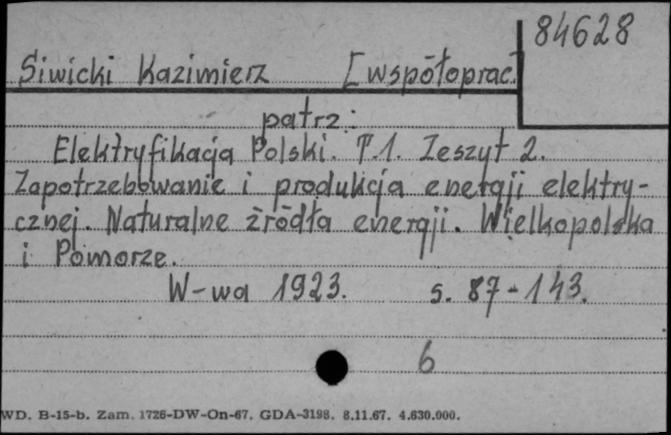 84628
Siwicki Kazimierz [współoprac.]
patrz:
Elektryfikacja Polski. T.1. Zeszyt 2.
Zapotrzebowanie i produkcja energji elektry-
cznej. Naturalne źródła energji. Wielkopolska
i Pomorze.
W-wa 1923. s. 87-143.
6
WD. B-15-b. Zam. 1726-DW-On-67. GDA-3198. 8.11.67. 4.630.000.